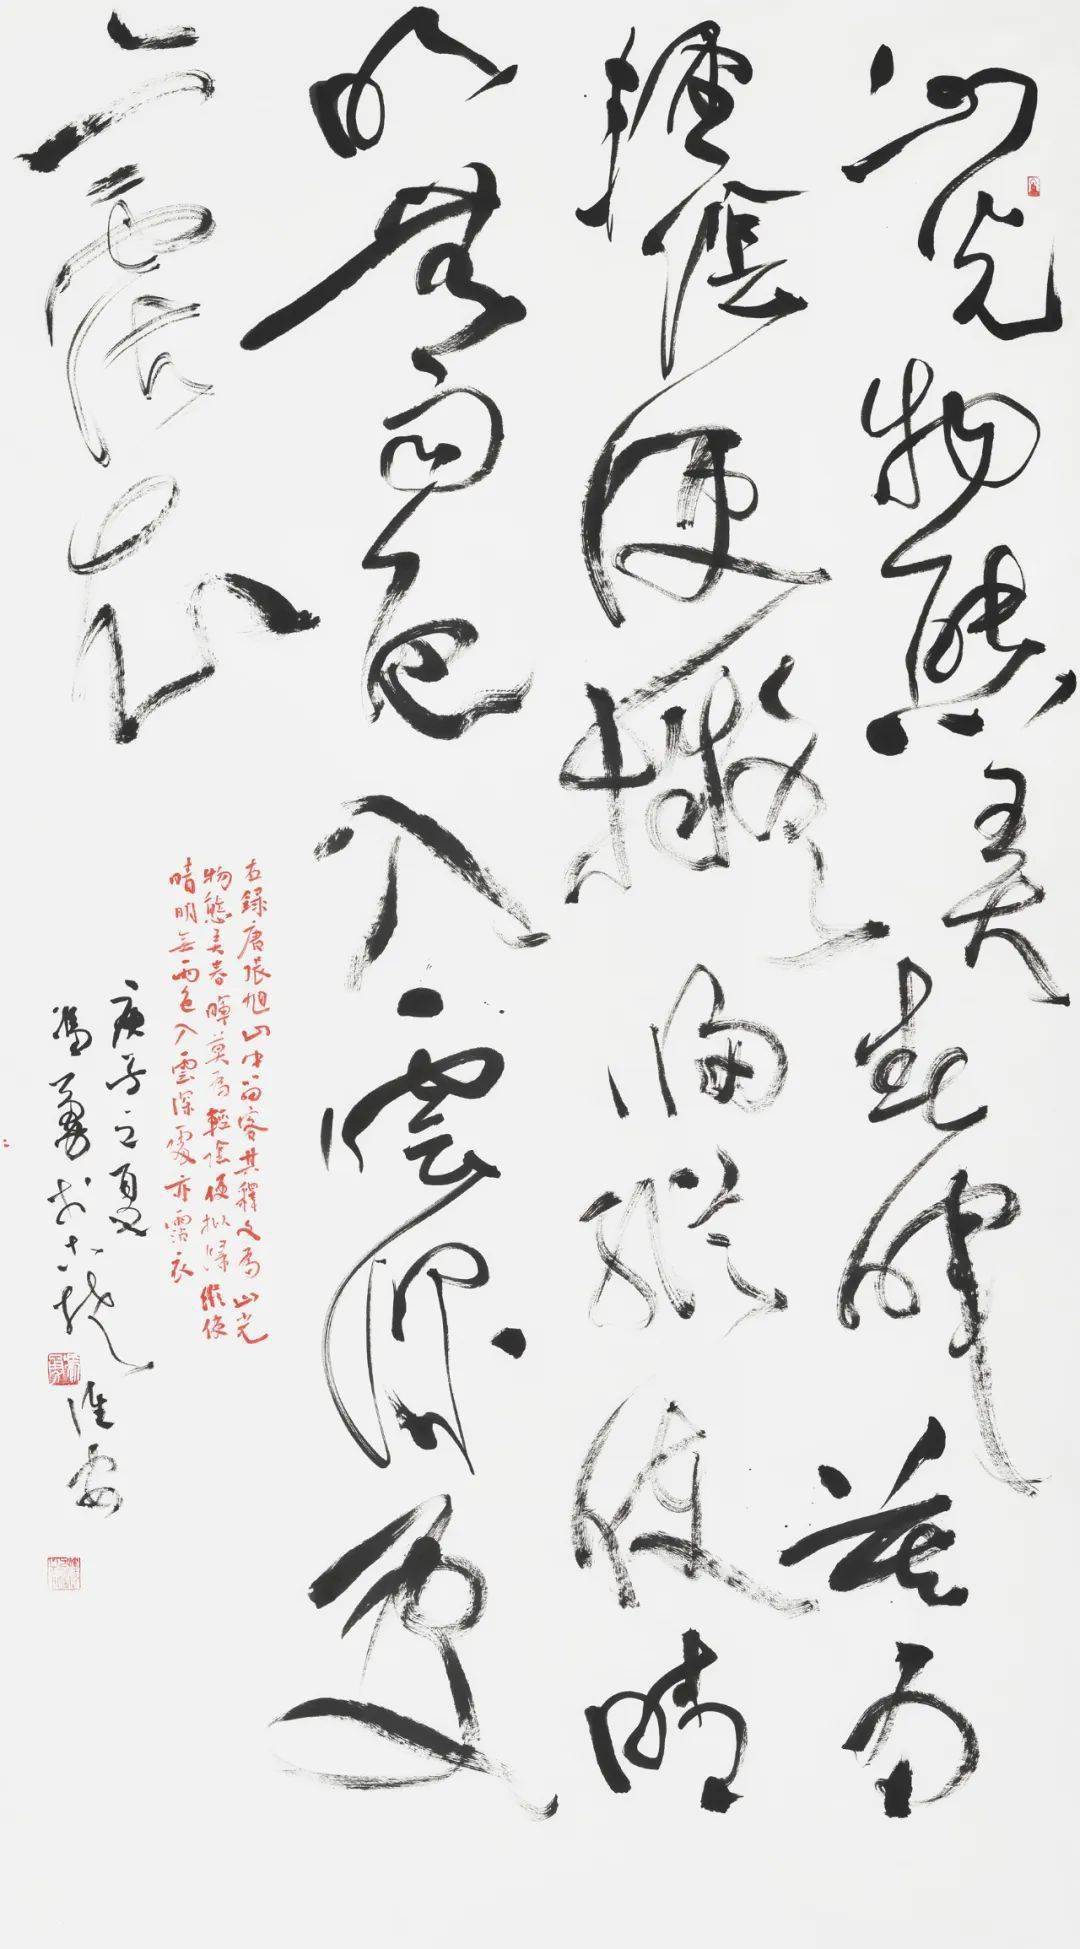 山光物態弄春暉莫為
輕陰便擬歸縱使晴
明無雨色入雲深處
亦霑衣
右錄唐張旭山中留客其釋文為山光
物態弄春暉莫為輕陰便拟歸縱使
晴明無雨色入雲深處亦霑衣
庚子之夏
馮勇於古楚淮安